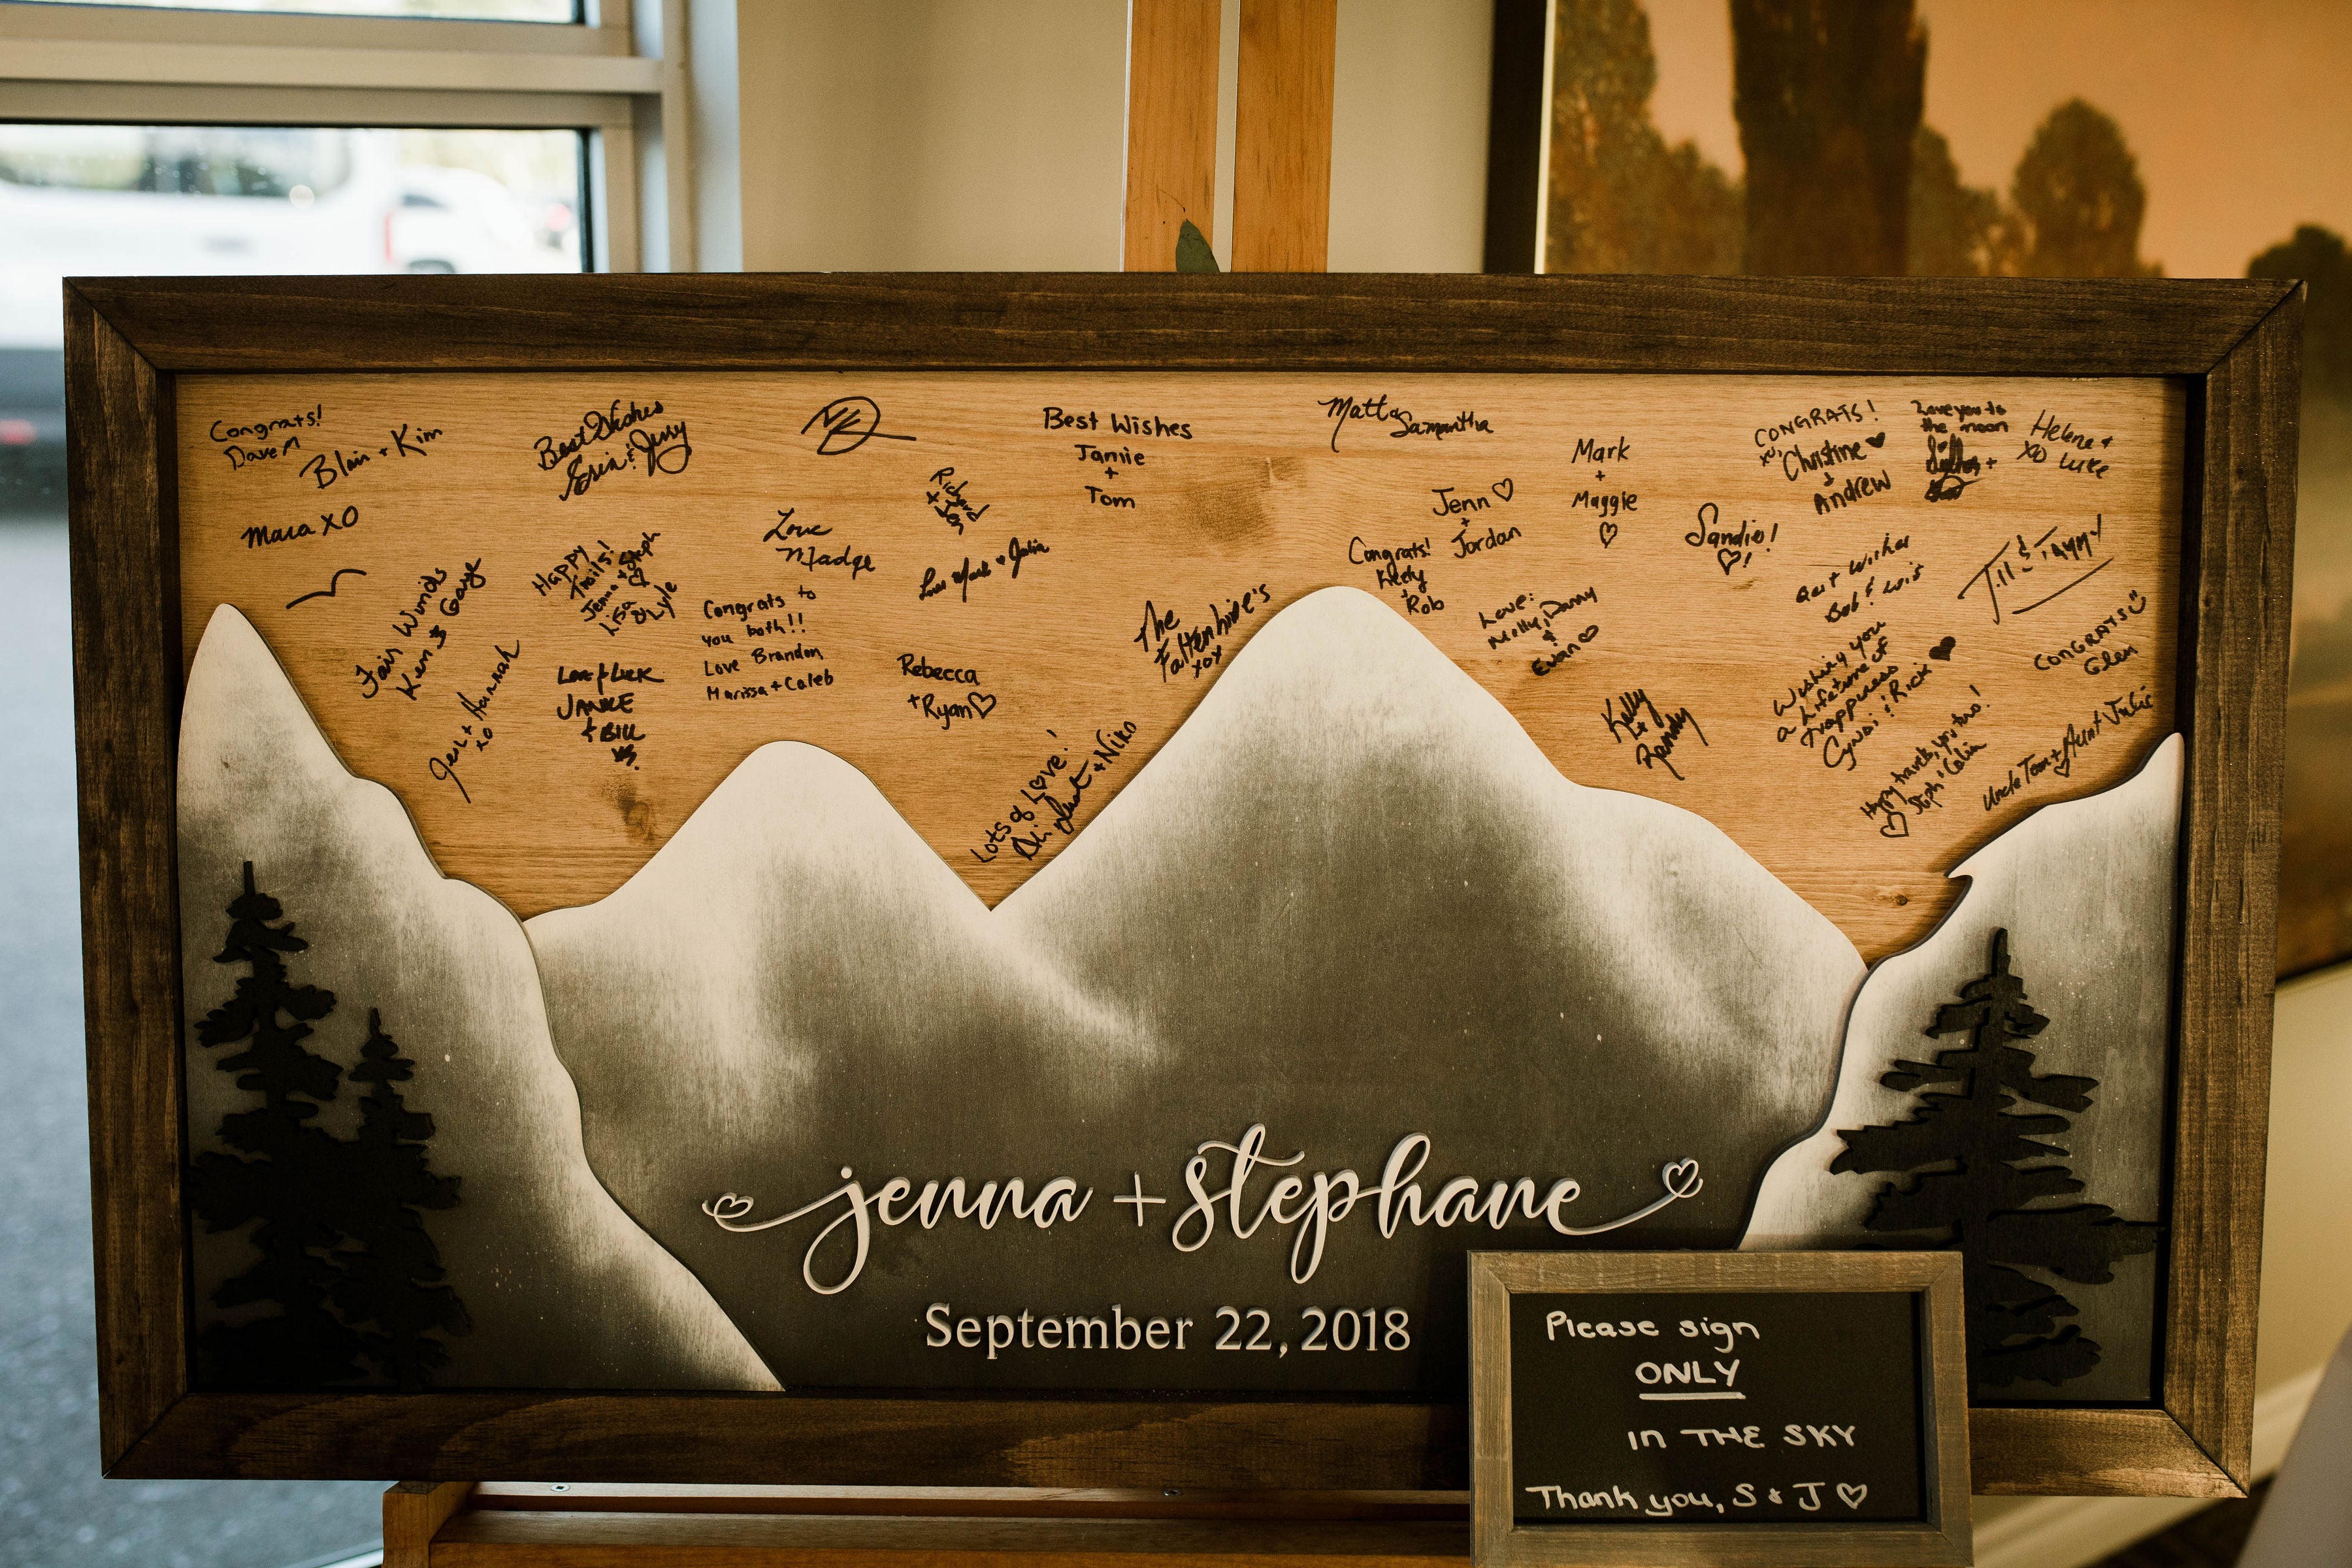 Congrats!
Dave M
Blair + Kim
Best Wishes
Erin & Jerry
Best Wishes
Jamie
+
Tom
Matt &
Samantha
Mark
+
Maggie
CONGRATS!
xo,
Christine
+
Andrew
Love you to
the moon
Helene +
XO Luke
Mara XO
Richard
+
Jen
Jenn
+
Jordan
Sandie!
Love
Madge
Love Mark Julia
Happy
Trails!
Jenna + Steph
Lisa
& Lyle
Fair Winds
Ken & Gaye
Congrats to
you both!!
Love Brandon
Marissa + Caleb
Congrats!
Keely
+
Rob
Best Wishes
Bob & Lois
Jill & Tammy
The
Faltenhine's
xox
Love:
Molly, Danny
&
Evan
Jess + Hannah
xo
Love & Luck
JANICE
+ BILL
Rebecca
+ Ryan
Kelly
+
Randy
Wishing you
a lifetime of
happiness
Cyndi & Rick
CONGRATS
Glen
Lots of Love!
+ Niko
Happy travels, you two!
Steph & Colin
Uncle Tom + Aunt Julie
jenna + stephane
September 22, 2018
Please sign
ONLY
in THE SKY
Thank you, S & J